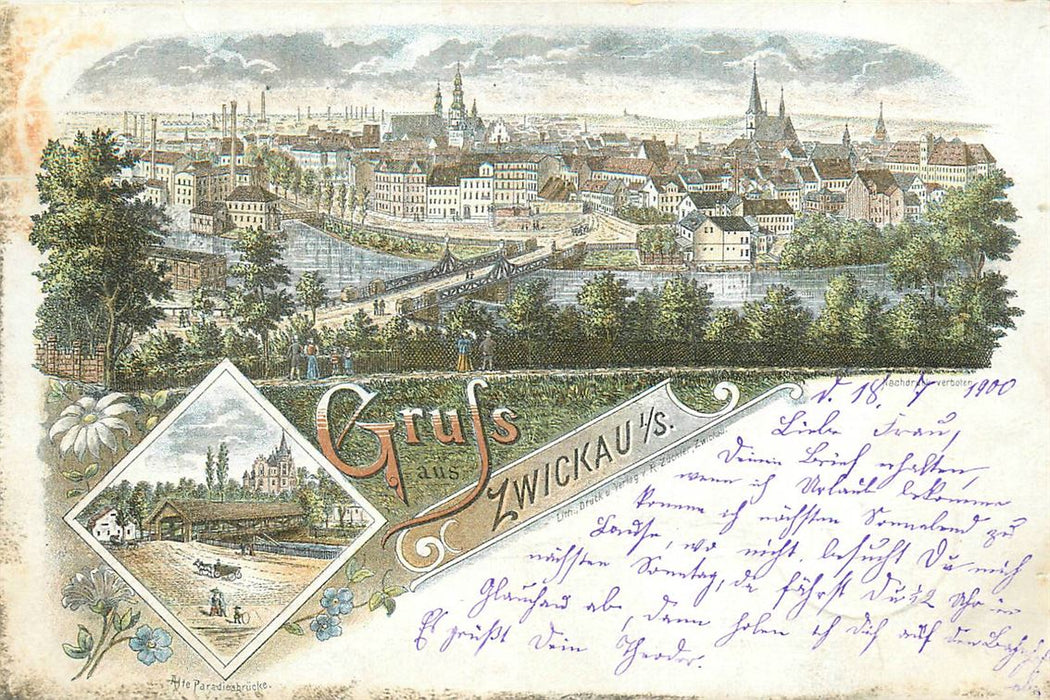 Nachdruck verboten
Gruss
aus
ZWICKAU i/S.
Lith., Druck u. Verlag v. R. Zückler, Zwickau
Alte Paradiesbrücke.
d. 18. 7 1900
Liebe Frau,
Deinen Brief erhalten,
wenn ich Urlaub bekomme
komme ich nächsten Sonnabend zu
Hause, wo nicht, besucht Du mich
nächsten Sonntag, da fährst Du 12 Uhr in
Glauchau ab, dann holen ich Dich auf den Bahnhof
ab.
Es grüßt Dein Theodor.